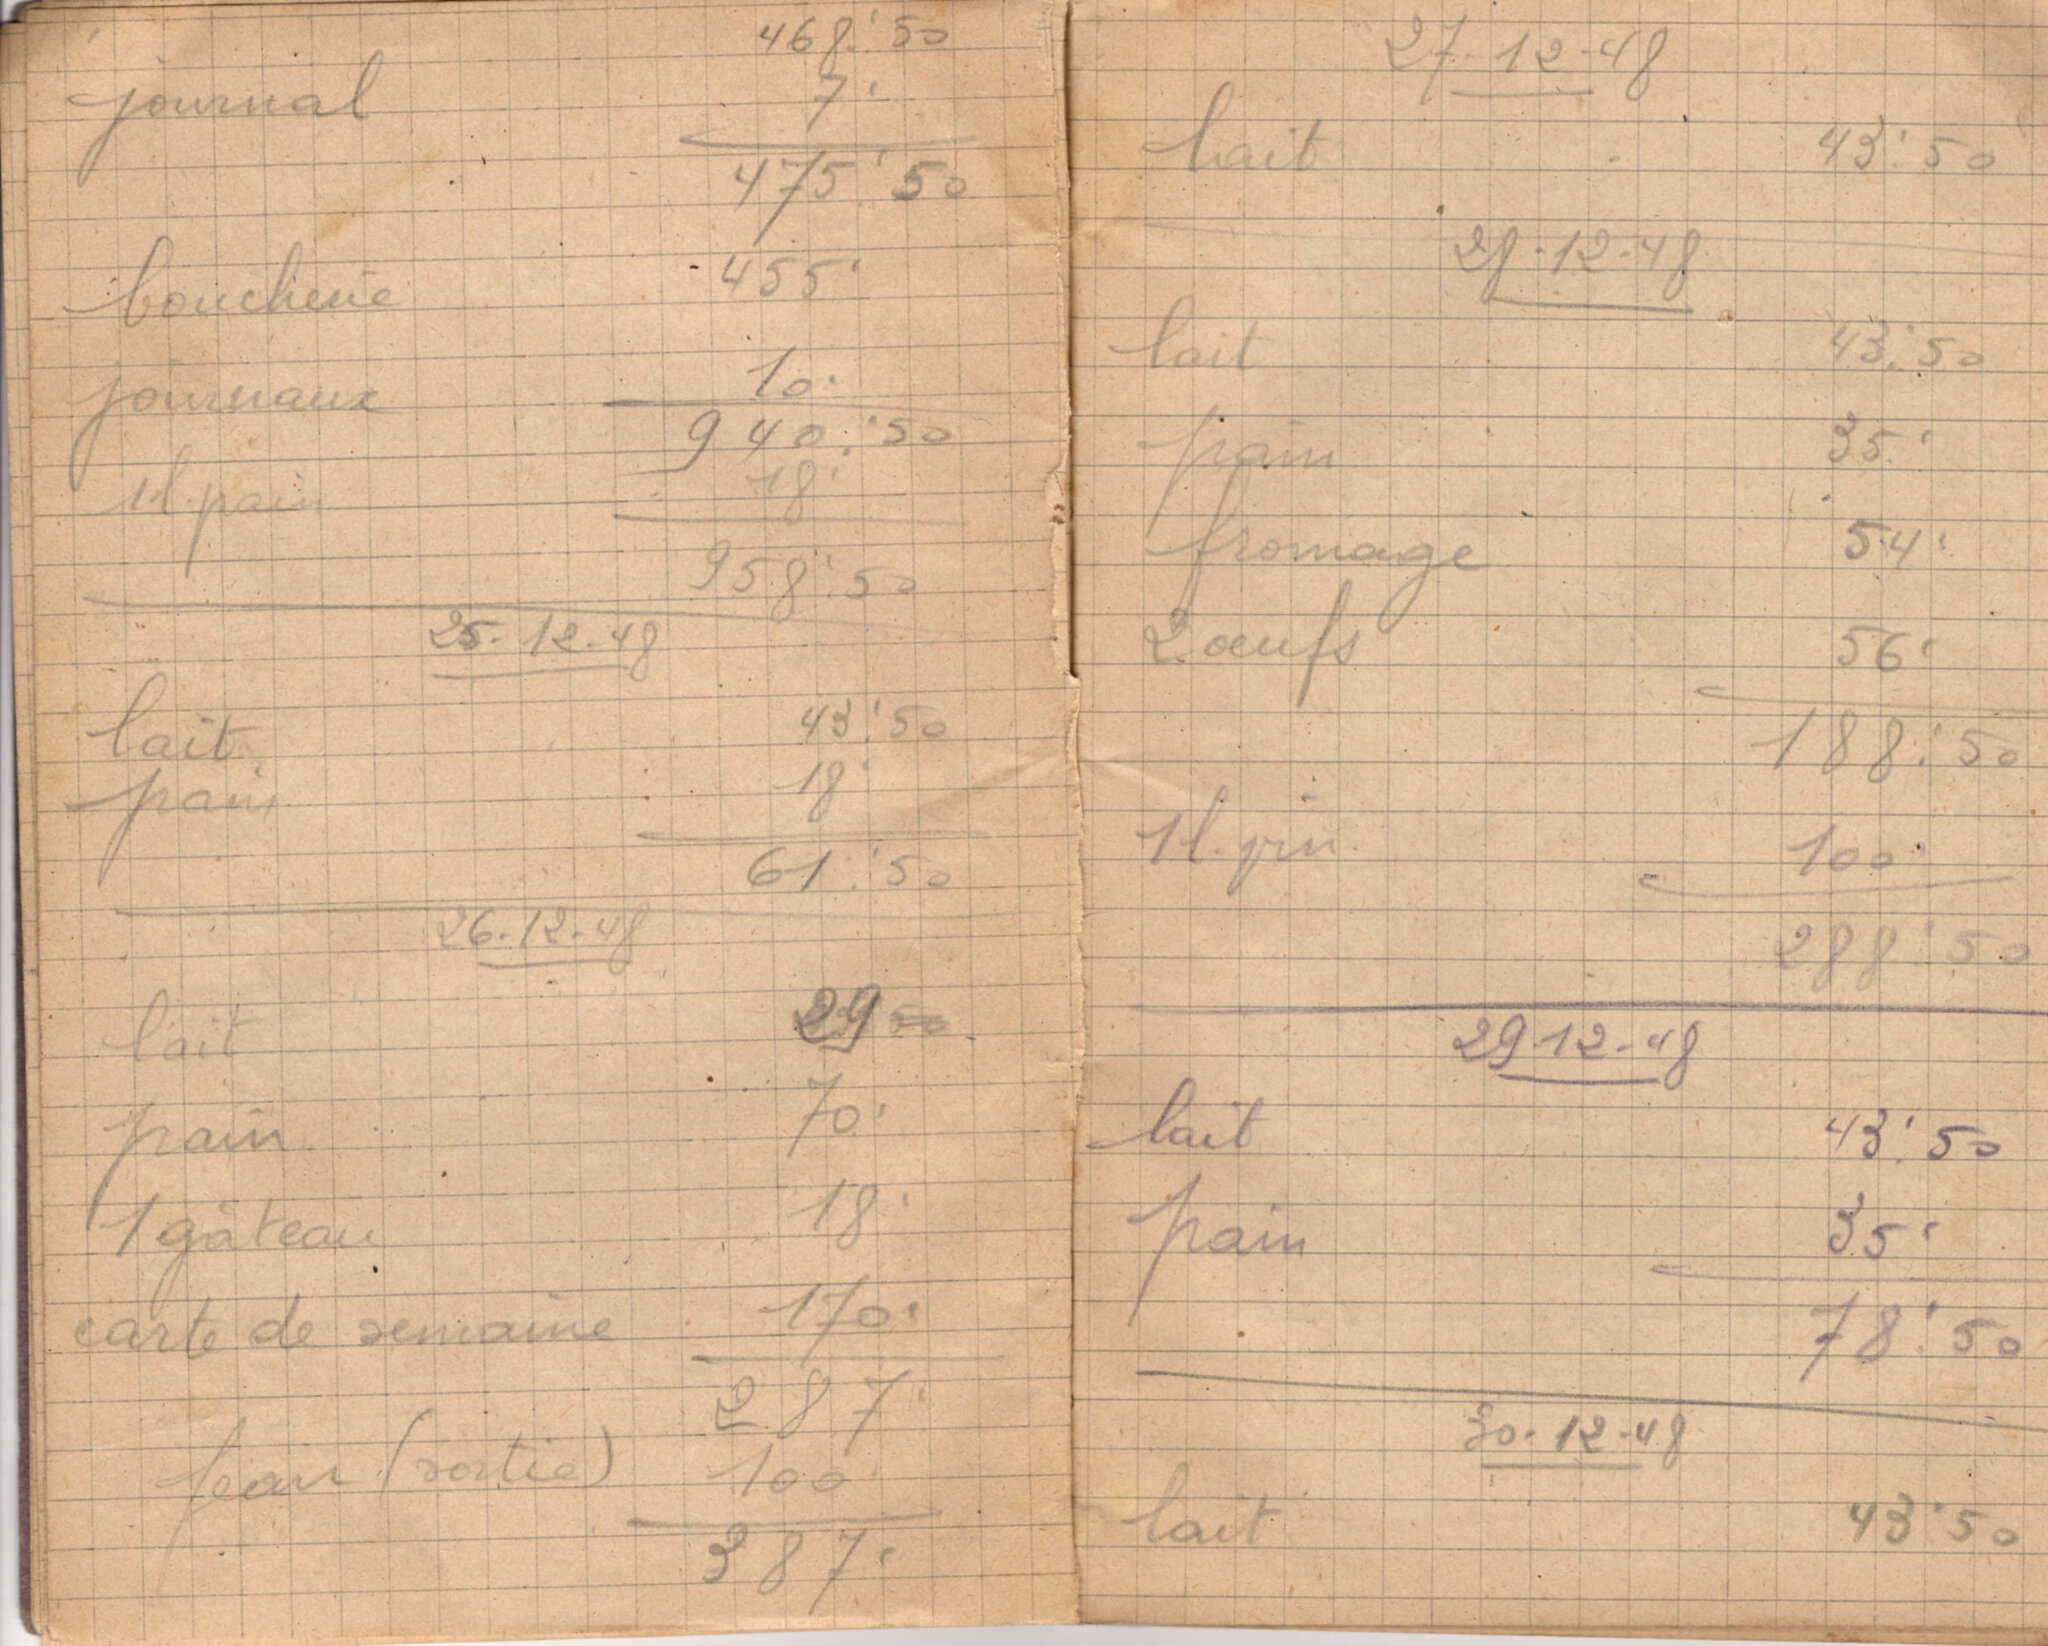 468.'50
journal 7.'
475.'50
boucherie 455.'
journaux 10.'
940.'50
1 l. pain 18.'
958.'50
25-12-48
lait 43.'50
pain 18.'
61.'50
26-12-48
lait 29
pain 70.'
1 gâteau 18.'
carte de semaine 170.'
287.'
Jean (sortie) 100.'
387.'
27-12-48
lait 43.'50
28-12-48
lait 43.'50
pain 35.'
fromage 54.'
2 œufs 56.'
188.'50
1 l. vin 100.'
288.'50
29-12-48
lait 43.'50
pain 35.'
78.'50
30-12-48
lait 43.'50